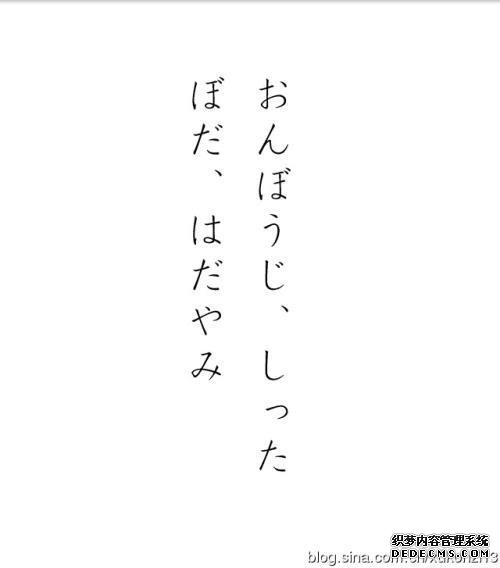 おんぼうじ、しった
ぼだ、はだやみ
织梦内容管理系统
DEDECMS.COM